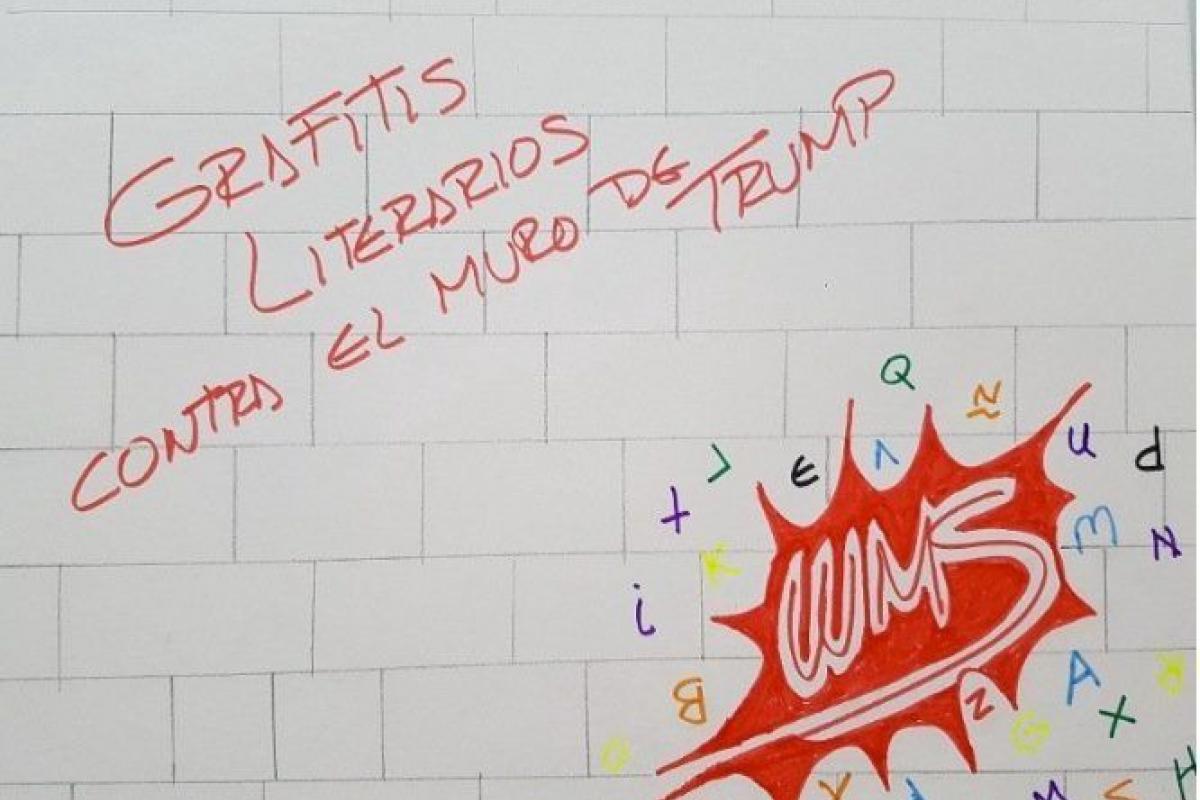 GRAFITIS
LITERARIOS
CONTRA EL MURO DE TRUMP
Q
Ñ
u
d
m
N
t
K
i
B
O
WMS
N
G
A
X
R
H